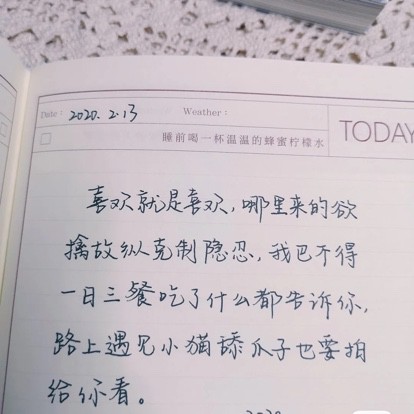 Date: 2020. 2.13 Weather:
睡前喝一杯温温的蜂蜜柠檬水
TODAY
喜欢就是喜欢,哪里来的欲
擒故纵克制隐忍,我巴不得
一日三餐吃了什么都告诉你,
路上遇见小猫舔爪子也要拍
给你看。